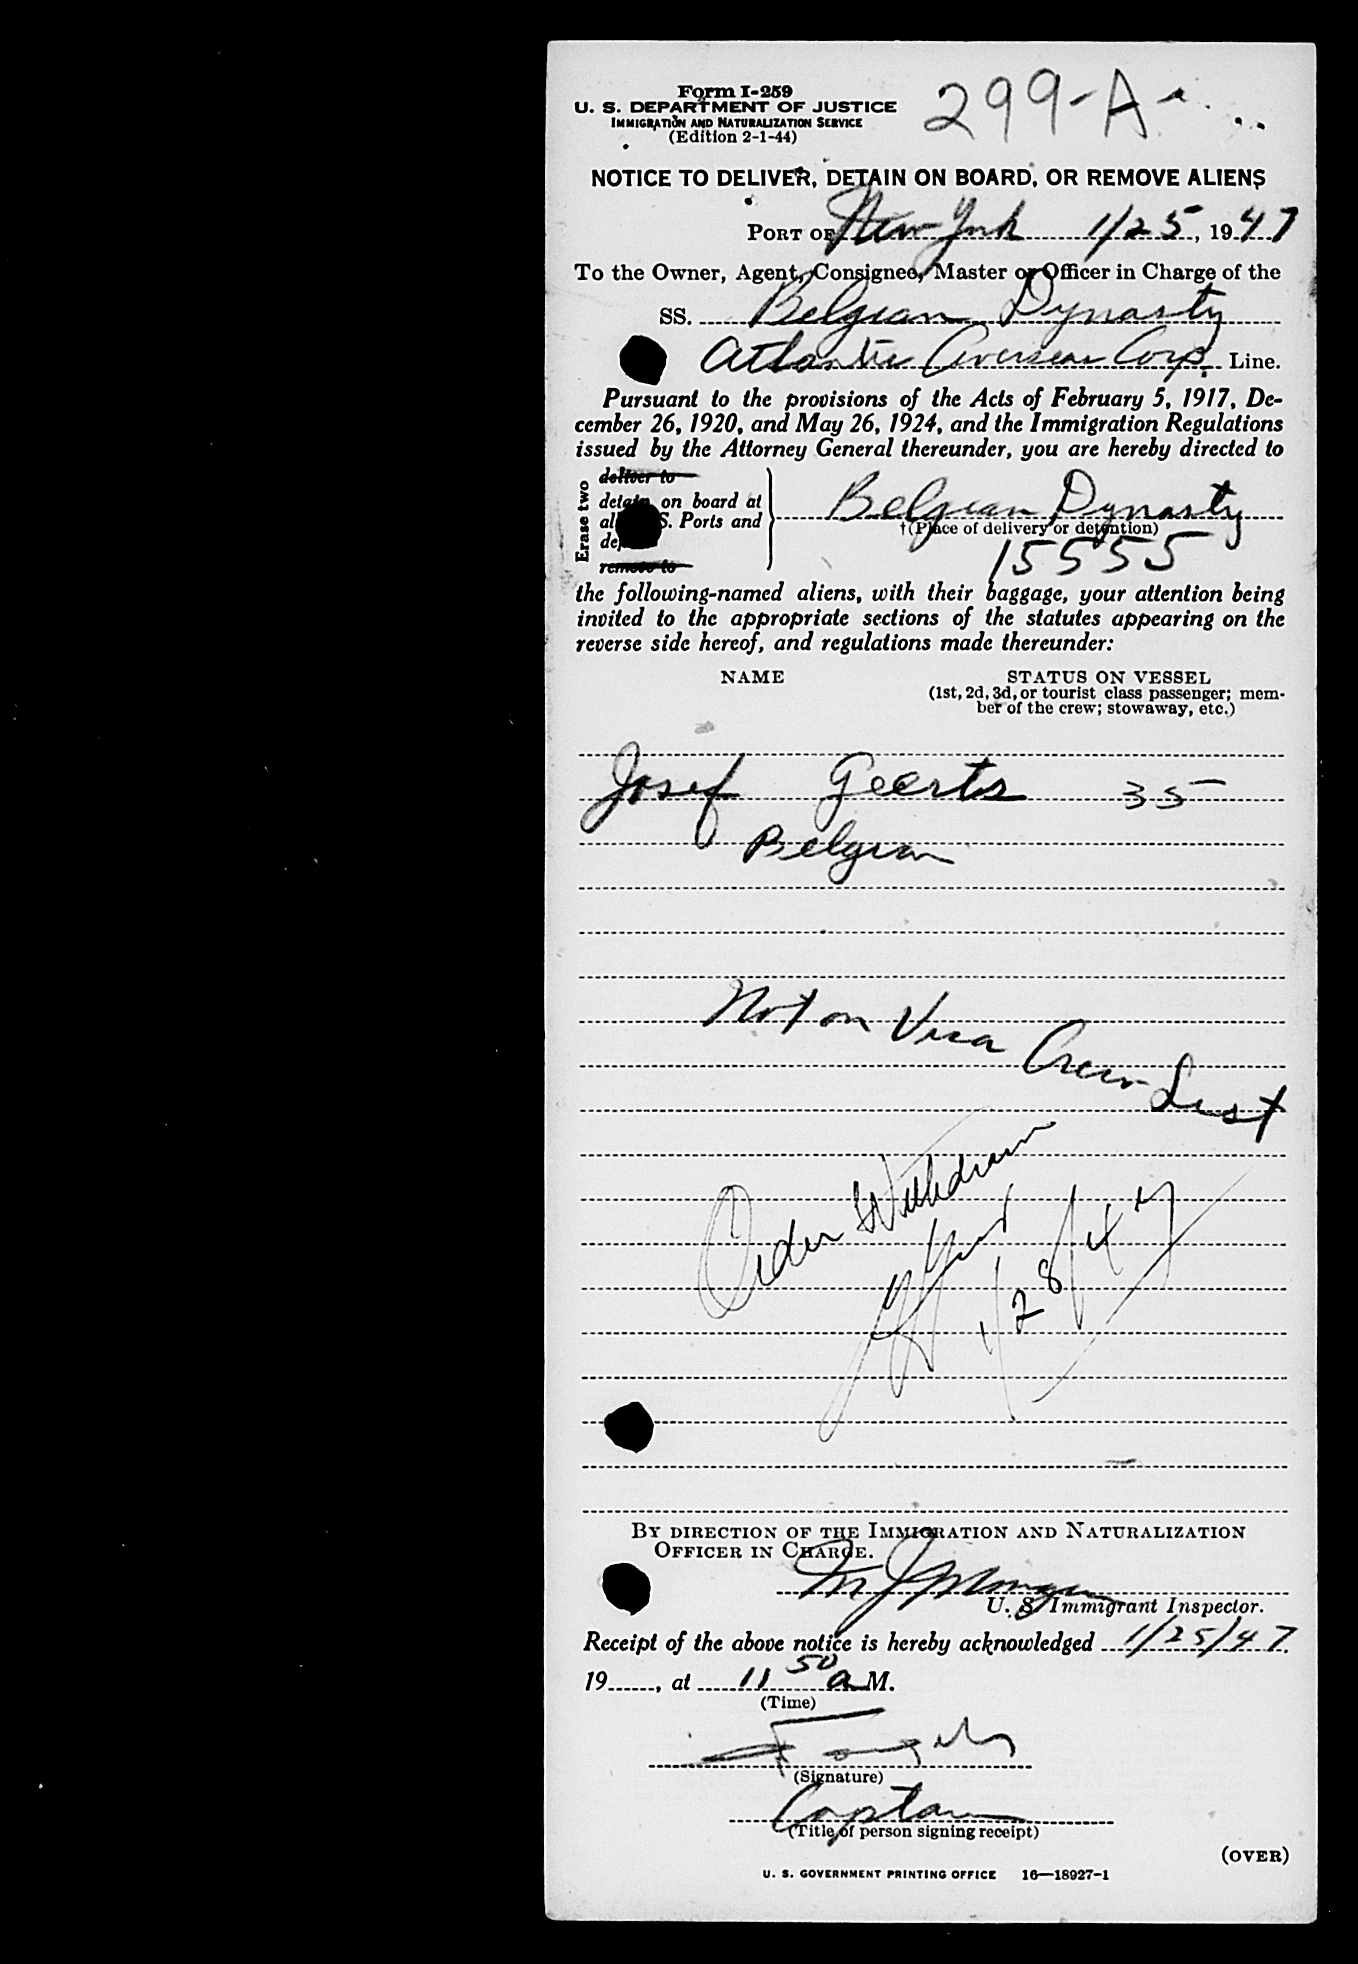 Form I-259
299-A
U. S. DEPARTMENT OF JUSTICE
IMMIGRATION AND NATURALIZATION SERVICE
(Edition 2-1-44)
NOTICE TO DELIVER, DETAIN ON BOARD, OR REMOVE ALIENS
PORT OF New York 1/25, 1947
To the Owner, Agent, Consignee, Master or Officer in Charge of the
SS. Belgian Dynasty
Atlantic Overseas Corp. Line.
Pursuant to the provisions of the Acts of February 5, 1917, De-
cember 26, 1920, and May 26, 1924, and the Immigration Regulations
issued by the Attorney General thereunder, you are hereby directed to
Erase two
deliver to
detain on board at
S. Ports and
remove to
Belgian Dynasty
†(Place of delivery or detention)
15555
the following-named aliens, with their baggage, your attention being
invited to the appropriate sections of the statutes appearing on the
reverse side hereof, and regulations made thereunder:
NAME STATUS ON VESSEL
(1st, 2d, 3d, or tourist class passenger; mem-
ber of the crew; stowaway, etc.)
Josef Geerts 35
Belgian
Not on Visa Crew List
Order Withdrawn
1/28/47
BY DIRECTION OF THE IMMIGRATION AND NATURALIZATION
OFFICER IN CHARGE.
M J Morgan
U. S. Immigrant Inspector.
Receipt of the above notice is hereby acknowledged 1/25/47
19......, at 11 50 a M.
(Time)
(Signature)
Captain
(Title of person signing receipt)
(OVER)
U. S. GOVERNMENT PRINTING OFFICE 16—18927-1